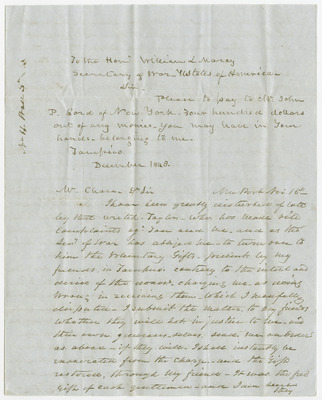 To the Honr William L Marcy
Secretary of War States of America
Sir.
Please to pay to Mr. John
P. Lord of New York. Four hundred dollars
out of any monies. you may have in your
hands. belonging to me.
Tampico.
December 1848.
Mr. Chase Dr Sir New York Nov 15th
I have been greatly disturbed of late
by that wretch. Taylor. who has made vile
complaints agt you and me. and as the
Secy of War has obliged me to turn over to
him the Voluntary Gifts. presents by my
friends, in Tampico contrary to the intent and
desire of the donors, charging me as doing
wrong in receiving them. which I
disputed. I submit the matter, to my friends
whether they will act in justice to me. in
their own generous way, send me an order
as above. if they will I shall instantly be
exonerated from the charge. and the Gifts
restored, through my friend. It was the free
Gift of each gentleman and I am